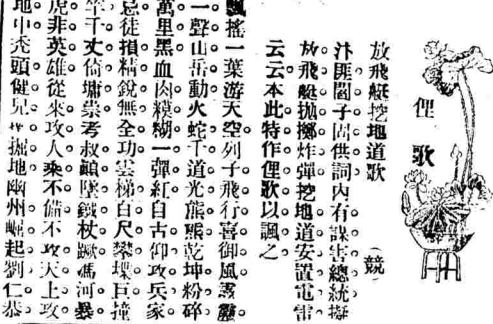 俚歌
放飛艇挖地道歌 (競)
汴匪閻子固供詞內有謀害總統擬
放飛艇拋擲炸彈挖地道安置電雷
云云本此特作俚歌以諷之
飄搖一葉游天空列子飛行喜御風霹靂
一聲山岳動火蛇千道光熊熊乾坤粉碎
萬里黑血肉糢糊一彈紅自古仰攻兵家
忌徒損精銳無全功雲梯百尺攀堞巨撞
竿千丈倚墉崇考叔顛墜鐵杖蹶馮河暴
虎非英雄從來攻人乘不備不攻天上攻
地中禿頭健兒掘地幽州崛起劉仁恭